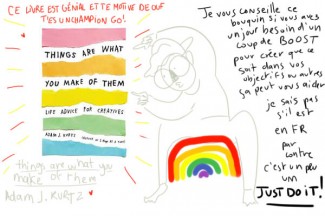 CE LIVRE EST GÉNIAL ET TE MOTIVE DE OUF
T'ES UN CHAMPION GO!
THINGS ARE WHAT
YOU MAKE OF THEM
LIFE ADVICE FOR CREATIVES
ADAM J. KURTZ
things are what you
make of them
Adam J. KURTZ
Je vous conseille ce
bouquin si vous avez
un jour besoin d'un
coup de BOOST
pour créer que ce
soit dans vos
objectifs ou autres
ça peut vous aider
je sais pas
s'il est
en FR
par
contre
c'est un peu
un
JUST DO IT!